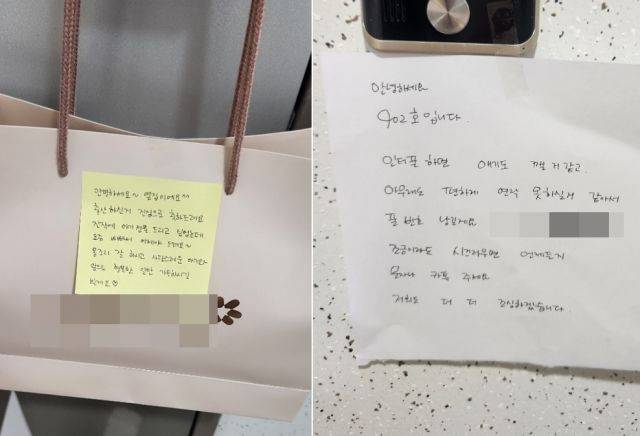 안녕하세요~ 옆집이에요^^
출산 하신거 진심으로 축하드려요
진작에 이미 선물 드리고 싶었는데
요즘 바빠서 이제야 드려요~
몸조리 잘 하시고 사랑스러운 아기와
앞으로 행복한 일만 가득하시길
바래요♡
안녕하세요
902호입니다.
인터폰 하면 애기도 깰 거 같고
아무래도 편하게 연락 못하실거 같아서
폰 번호 남길게요
조금이라도 시끄러우면 언제든지
문자나 카톡 주세요
저희도 더 더 조심하겠습니다.